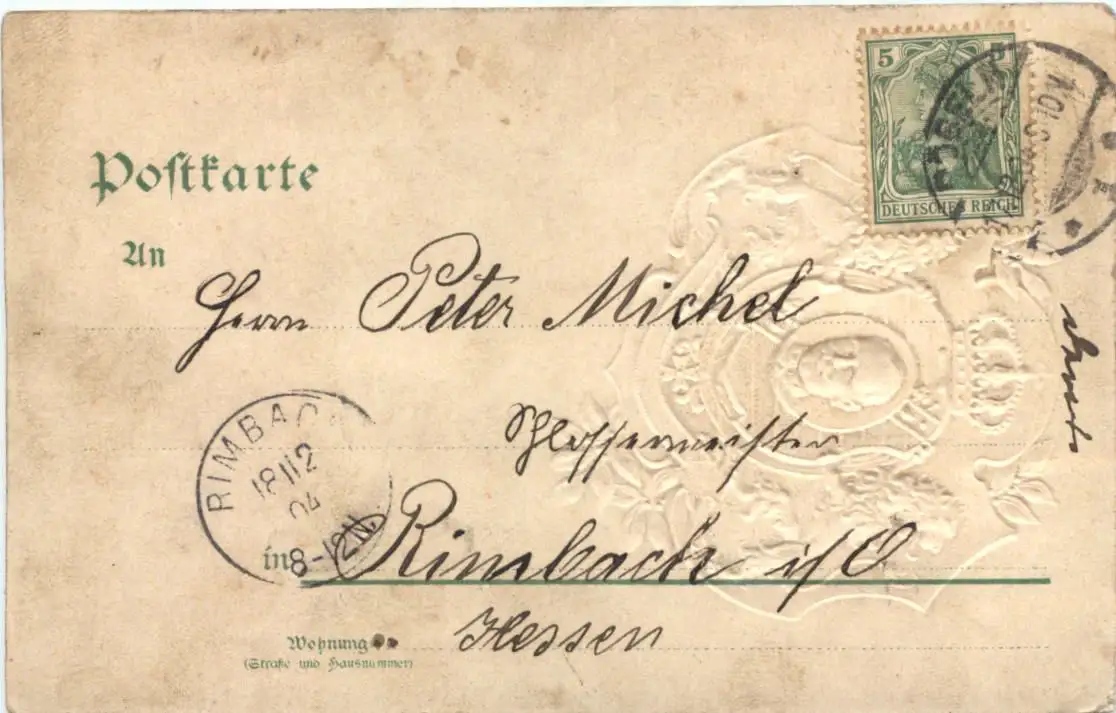 5 5
DEUTSCHES REICH
Postkarte
An
Herrn Peter Michel
Schlossermeister
RIMBACH
18 12
04
8-12N.
in Rimbach i/O
Hessen
Wohnung
(Straße und Hausnummer)